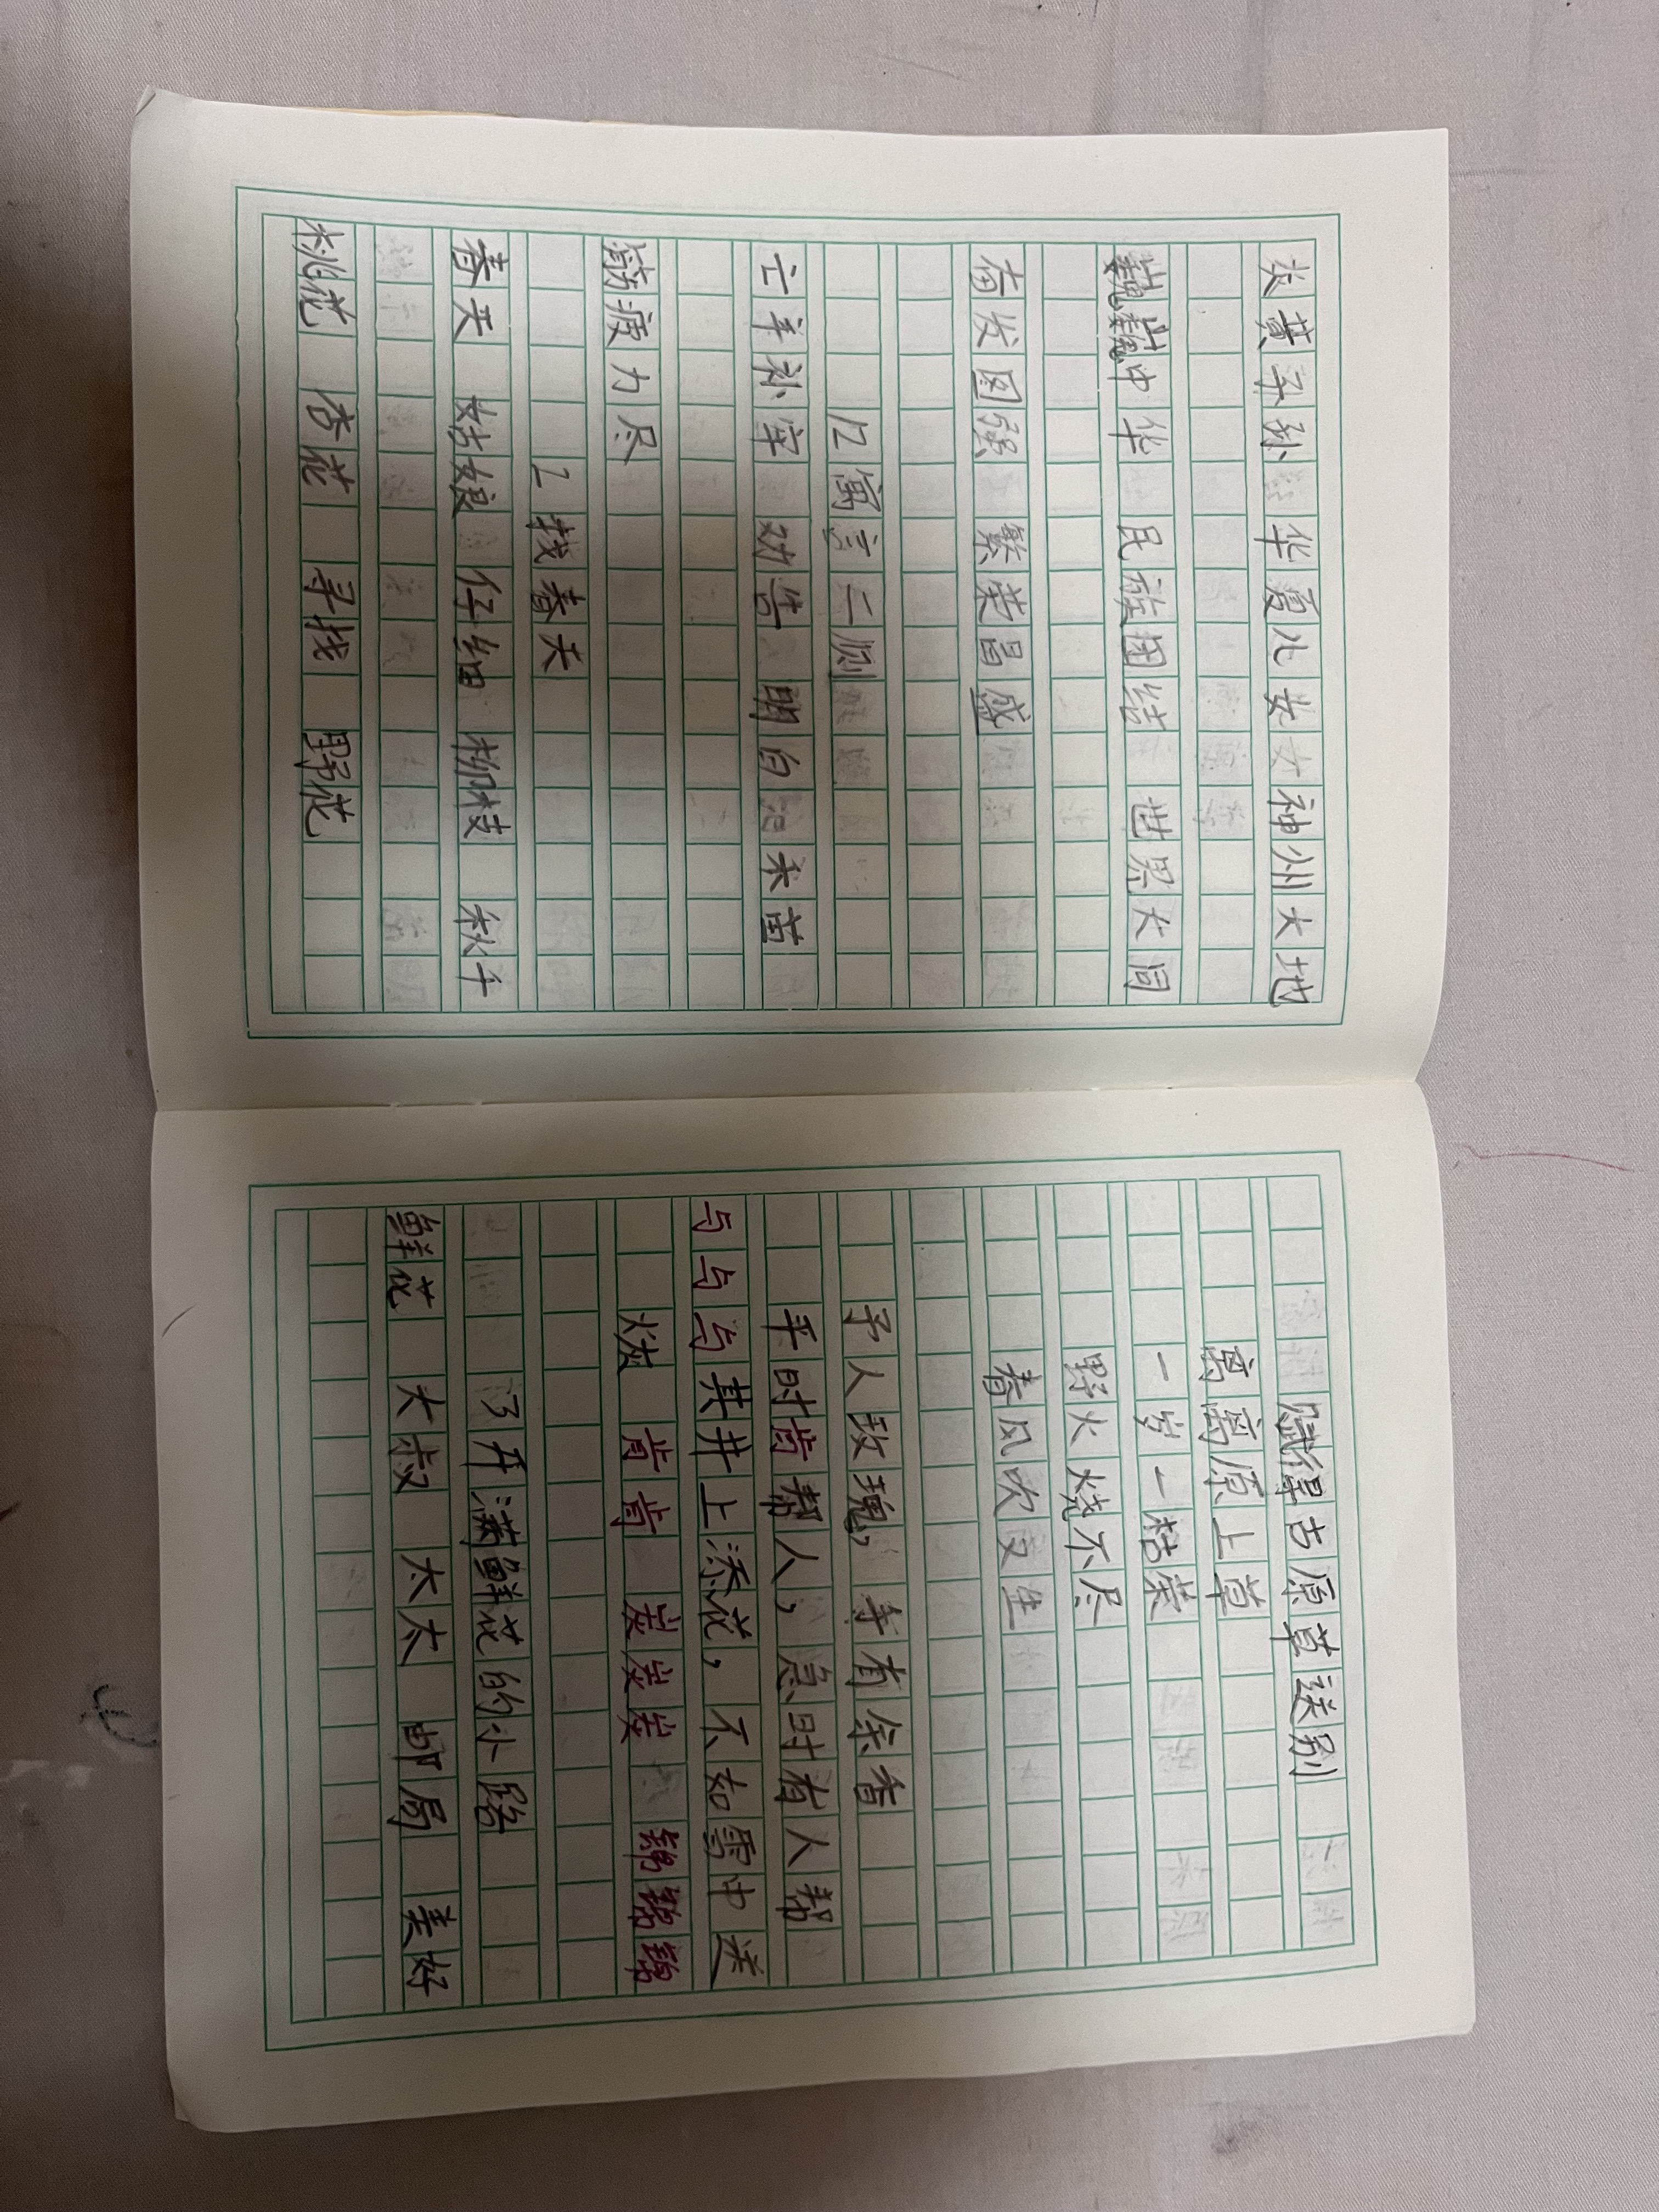 炎黄子孙 华夏儿女 神州大地
巍巍中华 民族团结 世界大同
奋发图强 繁荣昌盛
12寓言二则
亡羊补牢 劝告 明白 禾苗
筋疲力尽
2找春天
春天 姑娘 仔细 柳枝 秋千
桃花 杏花 寻找 野花
赋得古原草送别
离离原上草
一岁一枯荣
野火烧不尽
春风吹又生
予人玫瑰，手有余香
平时肯帮人，急时有人帮
与与与其井上添花，不如雪中送
肯肯 炭炭炭 锦锦锦
3开满鲜花的小路
鲜花 大叔 太太 邮局 美好